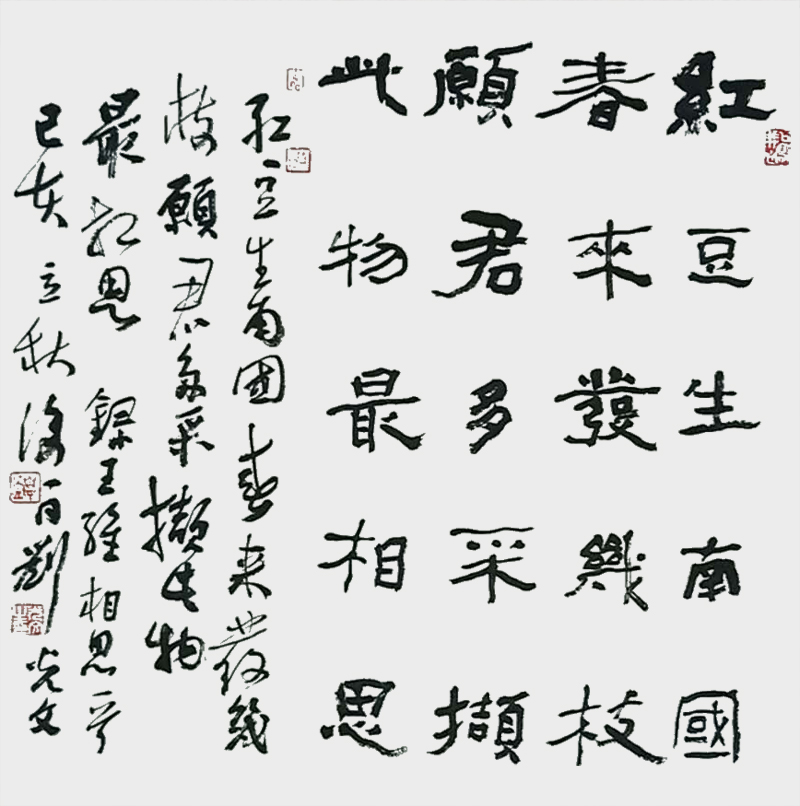 紅豆生南國
春來發幾枝
願君多采擷
此物最相思
紅豆生南國春來發幾
枝願君多采擷此物
最相思 錄王維相思一首
己亥立秋後一日劉光文